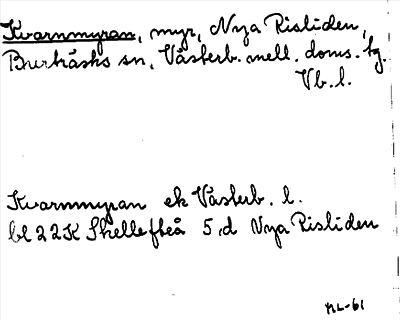 Kvarnmyran, myr, Nya Risliden,
Burträsks sn, Västerb. mell. doms. tg.
Vb. l.
Kvarnmyran ek Västerb. l.
bl 22K Skellefteå 5,d Nya Risliden
NL-61